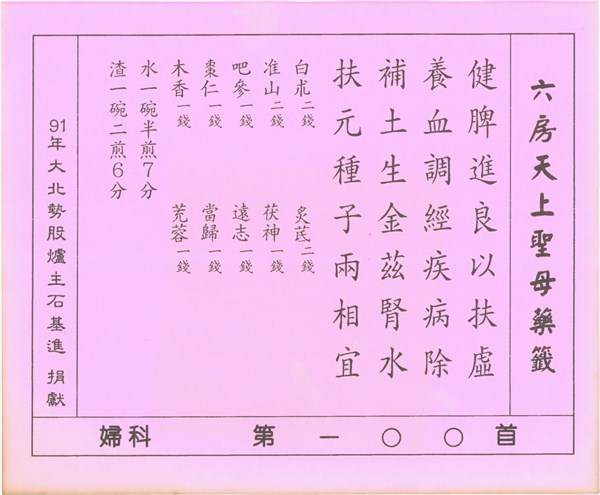 六房天上聖母藥籤
健脾進良以扶虛
養血調經疾病除
補土生金茲腎水
扶元種子兩相宜
白朮二錢 炙芪二錢
准山二錢 茯神一錢
吧參一錢 遠志一錢
棗仁一錢 當歸一錢
木香一錢 芫蓉一錢
水一碗半煎7分
渣一碗二煎6分
91年大北勢股爐主石基進 捐獻
婦科 第一○○首